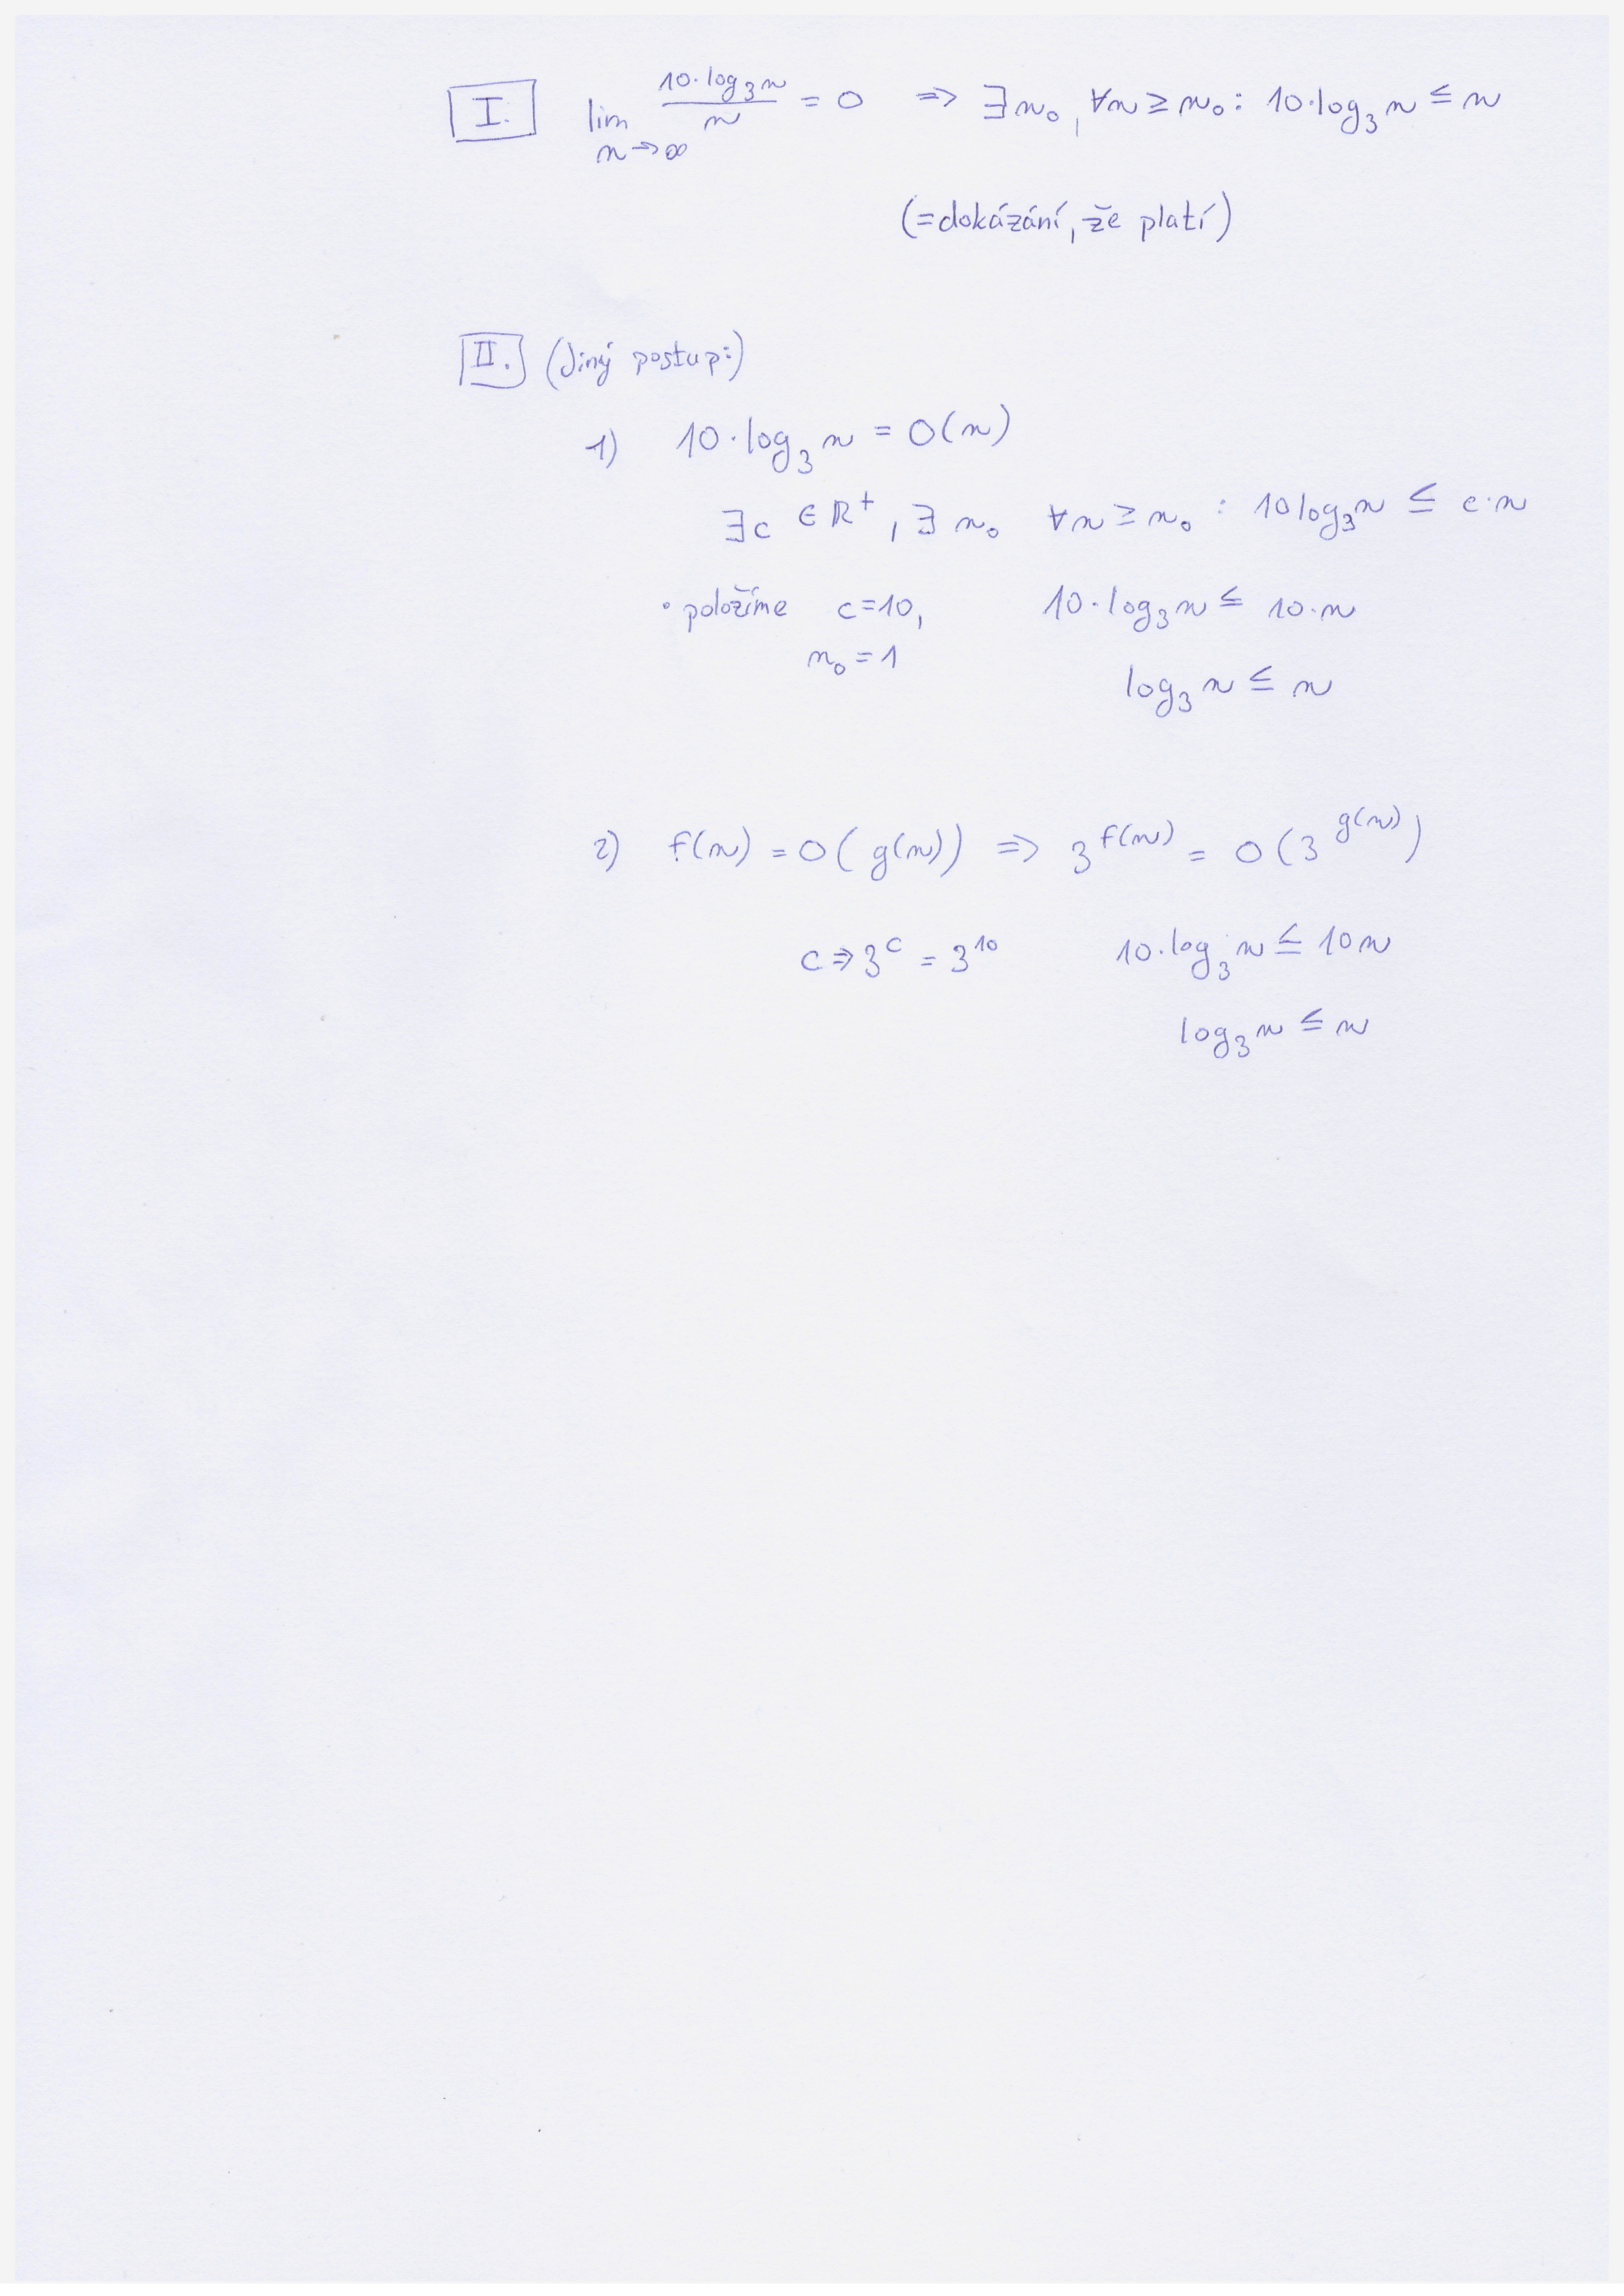 I. lim n→∞ 10·log₃n / n = 0 ⇒ ∃n₀, ∀n ≥ n₀: 10·log₃ n ≤ n
(=dokázání, že platí)
II. (Jiný postup:)
1) 10·log₃ n = O(n)
∃c ∈ ℝ⁺, ∃ n₀ ∀n ≥ n₀ : 10log₃n ≤ c·n
• položíme c=10, 10·log₃n ≤ 10·n
n₀ = 1
log₃ n ≤ n
2) f(n) = O(g(n)) ⇒ 3^f(n) = O(3^g(n))
c ⇒ 3^c = 3^10 10·log₃ n ≤ 10n
log₃ n ≤ n